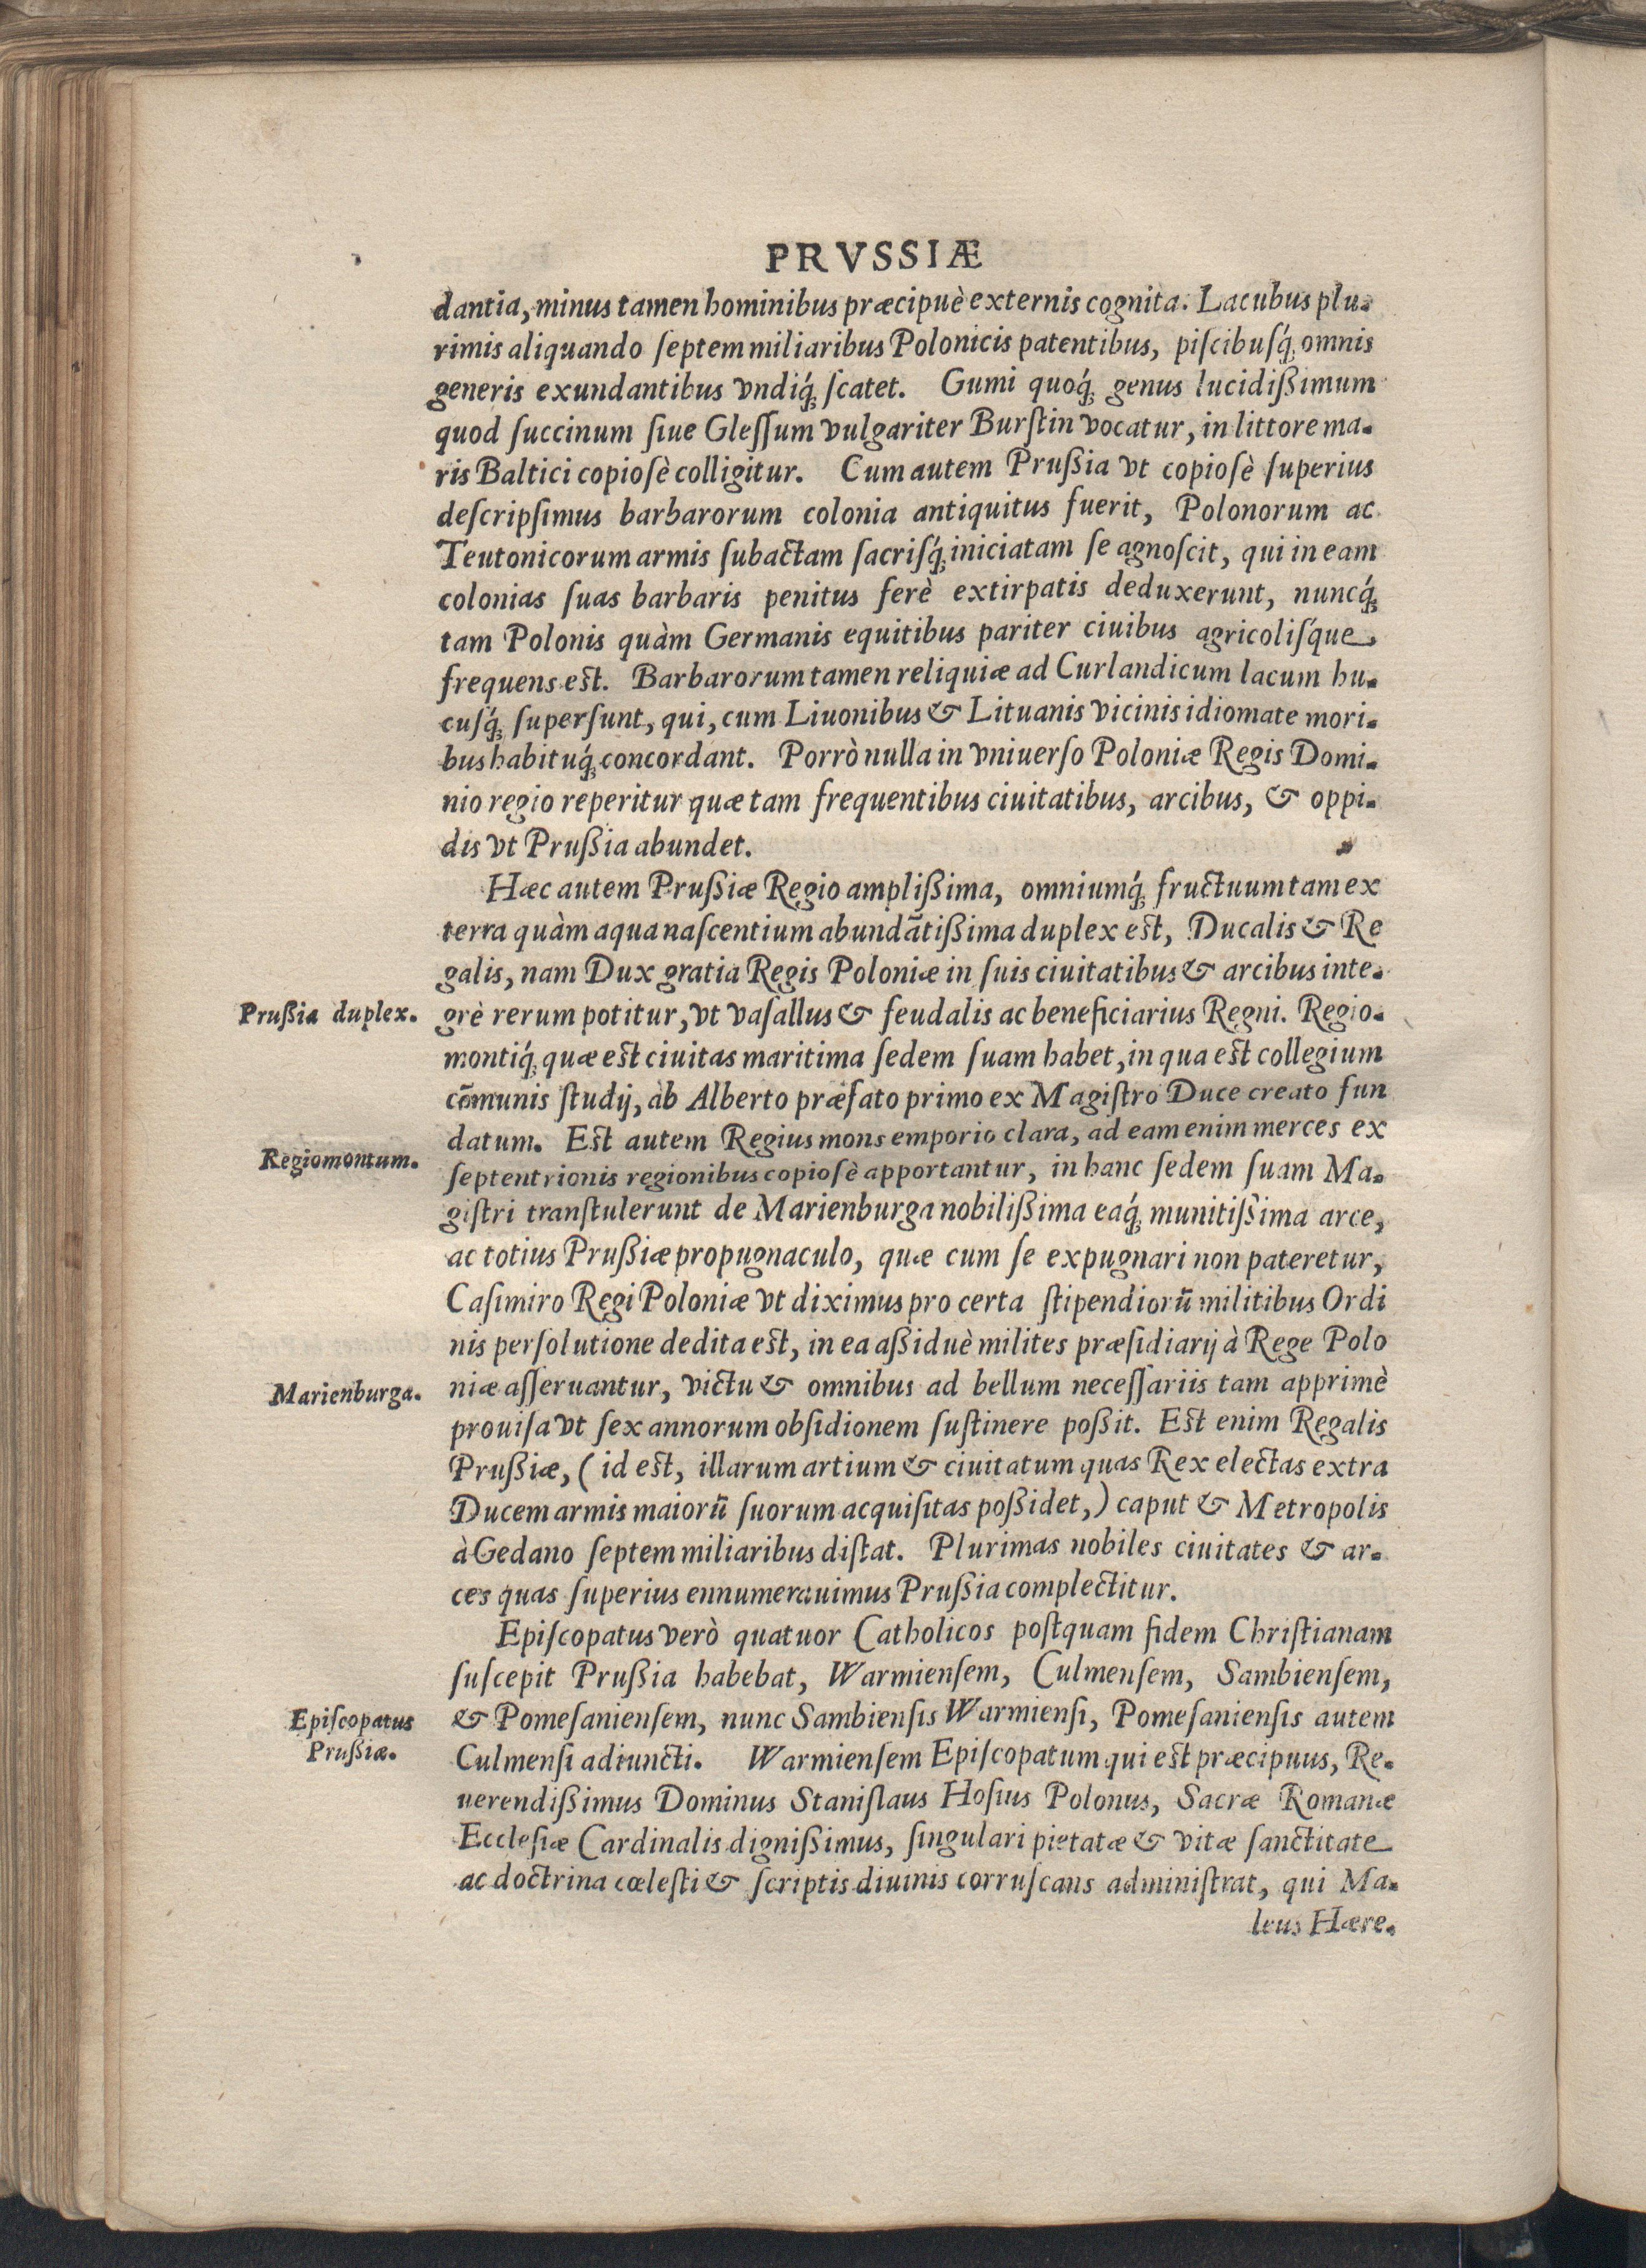 PRVSSIÆ
dantia, minus tamen hominibus præcipuè externis cognita. Lacubus plu-
rimis aliquando ſeptem miliaribus Polonicis patentibus, piſcibuſq́; omnis
generis exundantibus vndiq́; ſcatet. Gumi quoq́; genus lucidißimum
quod ſuccinum ſiue Gleſſum vulgariter Burſtin vocatur, in littore ma-
ris Baltici copioſè colligitur. Cum autem Prußia vt copioſè ſuperius
deſcripſimus barbarorum colonia antiquitus fuerit, Polonorum ac
Teutonicorum armis ſubactam ſacriſq́; iniciatam ſe agnoſcit, qui in eam
colonias ſuas barbaris penitus ferè extirpatis deduxerunt, nuncq́;
tam Polonis quàm Germanis equitibus pariter ciuibus agricoliſq́ue
frequens est. Barbarorum tamen reliquiæ ad Curlandicum lacum hu-
cuſq́; ſuperſunt, qui, cum Liuonibus & Lituanis vicinis idiomate mori-
bus habituq́; concordant. Porrò nulla in vniuerſo Poloniæ Regis Domi-
nio regio reperitur quæ tam frequentibus ciuitatibus, arcibus, & oppi-
dis vt Prußia abundet.
Hæc autem Prußiæ Regio amplißima, omniumq́; fructuum tam ex
terra quàm aqua naſcentium abundātißima duplex est, Ducalis & Re
galis, nam Dux gratia Regis Poloniæ in ſuis ciuitatibus & arcibus inte-
Prußia duplex. grè rerum potitur, vt vaſallus & feudalis ac beneficiarius Regni. Regio-
montiq́; quæ est ciuitas maritima ſedem ſuam habet, in qua est collegium
cōmunis ſtudij, àb Alberto præfato primo ex Magiſtro Duce creato fun
datum. Est autem Regius mons emporio clara, ad eam enim merces ex
Regiomontum. ſeptentrionis regionibus copioſè apportantur, in hanc ſedem ſuam Ma-
giſtri tranſtulerunt de Marienburga nobilißima eaq́; munitißima arce,
ac totius Prußiæ propugnaculo, quæ cum ſe expugnari non pateretur,
Caſimiro Regi Poloniæ vt diximus pro certa ſtipendiorū militibus Ordi
nis perſolutione dedita est, in ea aßiduè milites præſidiarij à Rege Polo
Marienburga. niæ aſſeruantur, victu & omnibus ad bellum neceſſariis tam apprimè
prouiſa vt ſex annorum obſidionem ſuſtinere poßit. Est enim Regalis
Prußiæ, (id est, illarum artium & ciuitatum quas Rex electas extra
Ducem armis maiorū ſuorum acquiſitas poßidet,) caput & Metropolis
à Gedano ſeptem miliaribus diſtat. Plurimas nobiles ciuitates & ar-
ces quas ſuperius ennumerauimus Prußia complectitur.
Epiſcopatus verò quatuor Catholicos poſtquam fidem Chriſtianam
ſuſcepit Prußia habebat, Warmienſem, Culmenſem, Sambienſem,
Epiſcopatus & Pomeſanienſem, nunc Sambienſis Warmienſi, Pomeſanienſis autem
Prußiæ. Culmenſi adiuncti. Warmienſem Epiſcopatum qui est præcipuus, Re-
uerendißimus Dominus Staniſlaus Hoſius Polonus, Sacræ Romanæ
Eccleſiæ Cardinalis dignißimus, ſingulari pietatæ & vitæ ſanctitate
ac doctrina cœleſti & ſcriptis diuinis corruſcans adminiſtrat, qui Ma-
leus Hære-